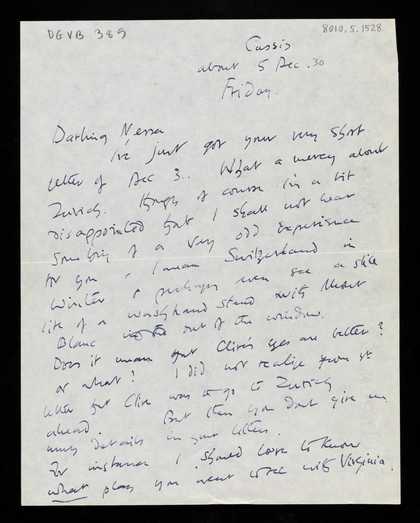 DGVB 389
8010.5.1528
Cassis
about 5 Dec. 30
Friday.
Darling Nessa
I've just got your very short
letter of Dec 3.. What a mercy about
Zurich. though of course I'm a bit
disappointed that I shall not hear
something of a very odd experience
for you, I mean Switzerland in
winter & perhaps even see a still
life of a washhand stand with Mont
Blanc out of the window.
Does it mean that Clive's eyes are better?
or what? I did not realize from yr
letter that Clive was to go to Zurich
ahead. But then you don't give me
many details in your letters.
For instance I should love to know
what play you went to see with Virginia.